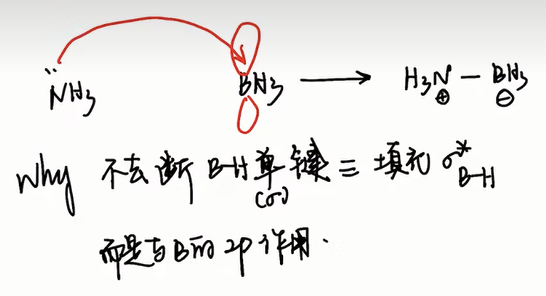 N̈H3 BH3 ⟶ H3N⊕ — BH3⊖
Why 不去断 B-H 单键 ≡ 填充 σ*B-H
(σ)
而是与B的 2p 作用.